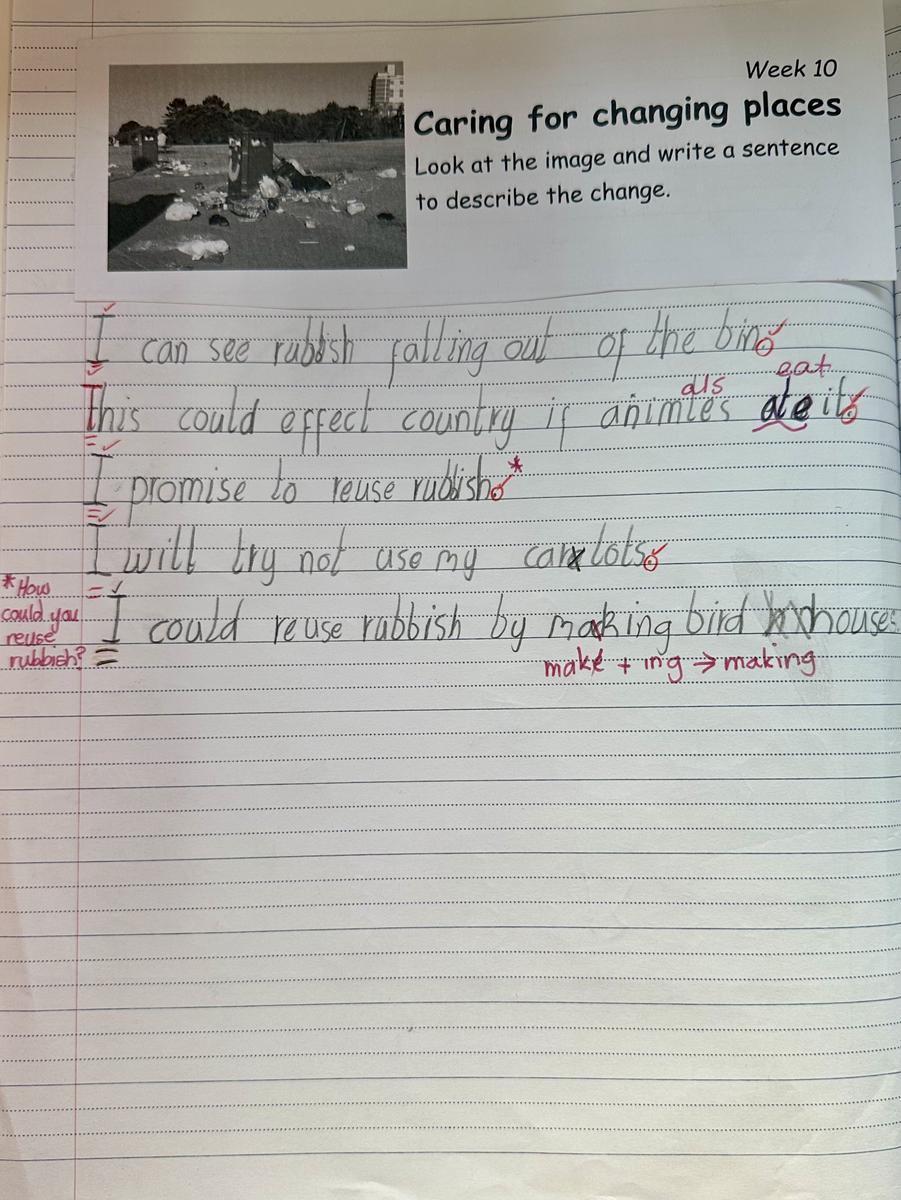 Week 10
Caring for changing places
Look at the image and write a sentence
to describe the change.
I can see rubbish falling out of the bin.
als eat
This could effect country if animles ate it.
I promise to reuse rubbish. *
I will try not use my car lots.
* How
could you
reuse
rubbish?
I could reuse rubbish by making bird houses
make + ing → making